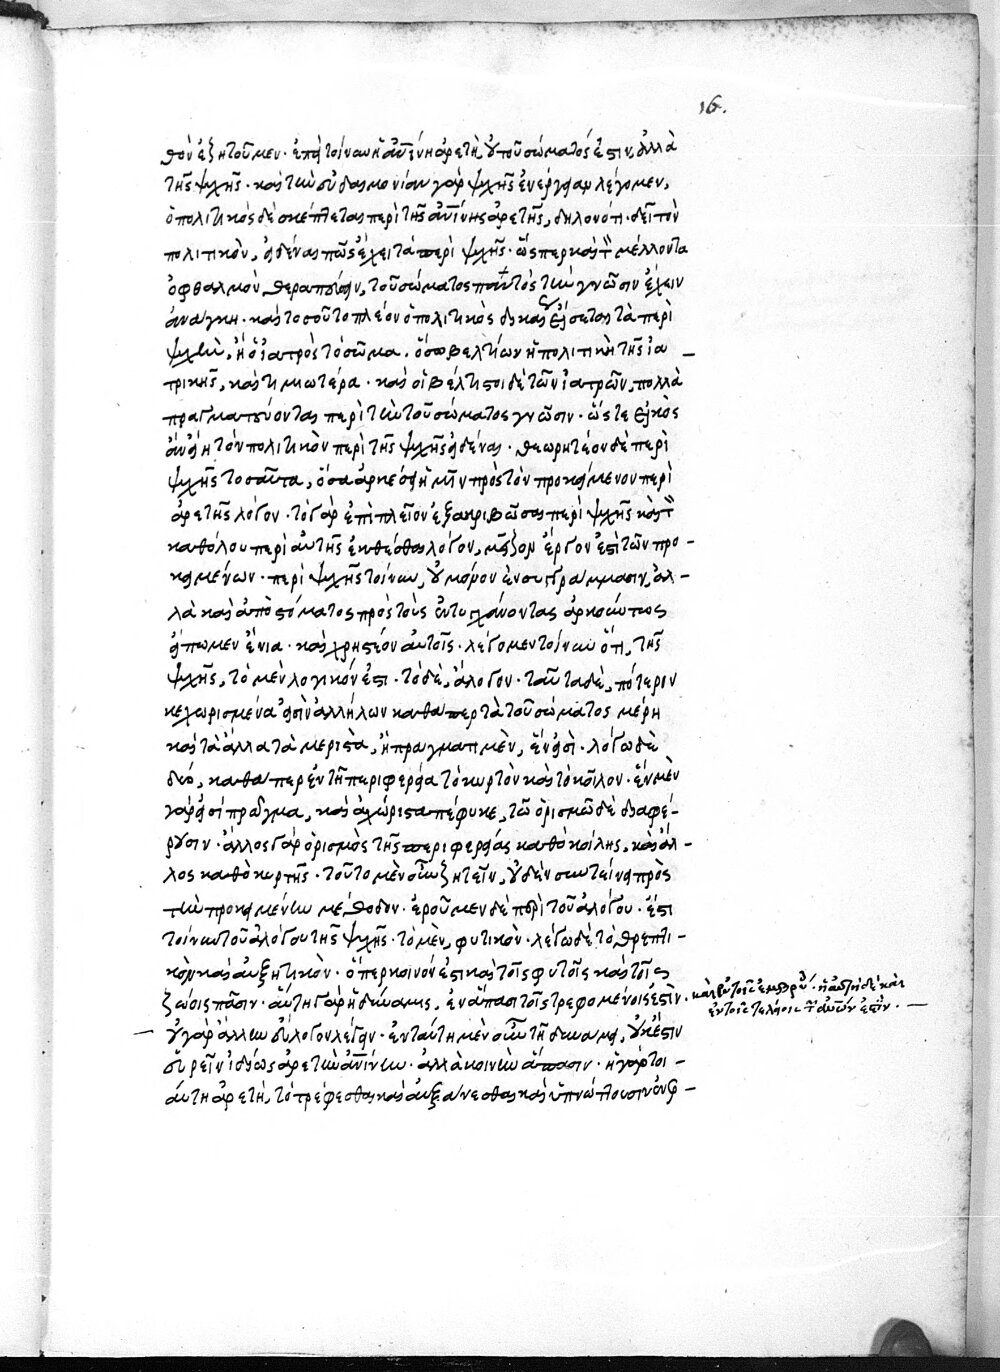 16.
θὸν ἐζητοῦμεν· ἐπεὶ τοίνυν ἡ ἀν΄ίνη ἀρετὴ, οὐ τοῦ σώματός ἐστιν, ἀλλὰ
τῆς ψυχῆς· καὶ τὴν εὐδαιμονίαν γὰρ ψυχῆς ἐνέργειαν λέγομεν,
ὁ πολιτικὸς δὲ σκέπτεται περὶ τῆς ἀν΄ίνης ἀρετῆς, δηλονότι· δεῖ τὸν
πολιτικὸν, εἰδέναι πῶς ἔχει τὰ περὶ ψυχῆς· ὥσπερ καὶ τὸν μέλλοντα
ὀφθαλμὸν θεραπεύειν, τοῦ σώματος παντὸς τὴν γνῶσιν ἔχειν
ἀνάγκη· καὶ τοσοῦτο πλέον ὁ πολιτικὸς δικαίως εἴσεται τὰ περὶ
ψυχὴν, ἢ ὁ ἰατρὸς τὸ σῶμα· ὅσῳ βελτίων ἡ πολιτικὴ τῆς ἰα–
τρικῆς, καὶ τιμιωτέρα· καὶ οἱ βέλτιστοι δὲ τῶν ἰατρῶν, πολλὰ
πραγματεύονται περὶ τὴν τοῦ σώματος γνῶσιν· ὥστε εἰκὸς
ἂν εἴη τὸν πολιτικὸν περὶ τῆς ψυχῆς εἰδέναι· θεωρητέον δὲ περὶ
ψυχῆς τοσαῦτα, ὅσα ἀρκέσει ἡμῖν πρὸς τὸν προκείμενον περὶ
ἀρετῆς λόγον· τὸ γὰρ ἐπὶ πλεῖον ἐξακριβῶσαι περὶ ψυχῆς καὶ τὸν
καθόλου περὶ αὐτῆς ἐκθέσθαι λόγον, μεῖζον ἔργον ἐστὶ τῶν προ–
κειμένων· περὶ ψυχῆς τοίνυν, οὐ μόνον ἐν συγγράμμασιν, ἀλ–
λὰ καὶ ἀπὸ στόματος πρὸς τοὺς ἐντυγχάνοντας ἀρκούντως
εἴπομεν ἔνια· καὶ χρηστέον αὐτοῖς· λέγομεν τοίνυν ὅτι, τῆς
ψυχῆς, τὸ μὲν λογικόν ἐστι· τὸ δὲ, ἄλογον· ταῦτα δὲ, πότερον
κεχωρισμένα εἰσὶν ἀλλήλων καθάπερ τὰ τοῦ σώματος μέρη
καὶ τὰ ἄλλα τὰ μεριστὰ, ἢ πράγματι μὲν, ἕν εἰσὶ· λόγῳ δὲ
δύο, καθάπερ ἐν τῇ περιφερείᾳ τὸ κυρτὸν καὶ τὸ κοῖλον· ἓν μὲν
γάρ εἰσι πρᾶγμα, καὶ ἀχώριστα πέφυκε, τῷ ὁρισμῷ δὲ διαφέ–
ρουσιν· ἄλλος γὰρ ὁρισμὸς τῆς περιφερείας καθὸ κοίλης, καὶ ἄλ–
λος καθὸ κυρτῆς· τοῦτο μὲν οὖν ζητεῖν, οὐδὲν συντείνει πρὸς
τὴν προκειμένην μέθοδον· ἐροῦμεν δὲ περὶ τοῦ ἀλόγου· ἔστι
τοίνυν τοῦ ἀλόγου τῆς ψυχῆς· τὸ μὲν, φυτικὸν· λέγω δὲ τὸ θρεπτι–
κὸν καὶ αὐξητικὸν· ὅπερ κοινόν ἐστι καὶ τοῖς φυτοῖς καὶ τοῖς
ζώοις πᾶσιν· αὕτη γὰρ ἡ δύναμις, ἐν ἅπασι τοῖς τρεφομένοις ἐστὶν·
καὶ ἐν τοῖς ἐμβρύοις· ἡ αὐτὴ δὲ καὶ
ἐν τοῖς τελείοις τῶν αὐτῶν ἐστὶν· —
— οὐ γὰρ ἄλλην εὔλογον λέγειν· ἐν ταύτῃ μὲν οὖν τῇ δυνάμει, οὐκ ἔστιν
εὑρεῖν ἰδίως ἀρετὴν ἀν΄ίνην· ἀλλὰ κοινὴν ἅπασιν· ἡ γάρ τοι–
αύτη ἀρετὴ, τὸ τρέφεσθαι καὶ αὐξάνεσθαι καὶ ὑπνώττουσιν ἐνερ–